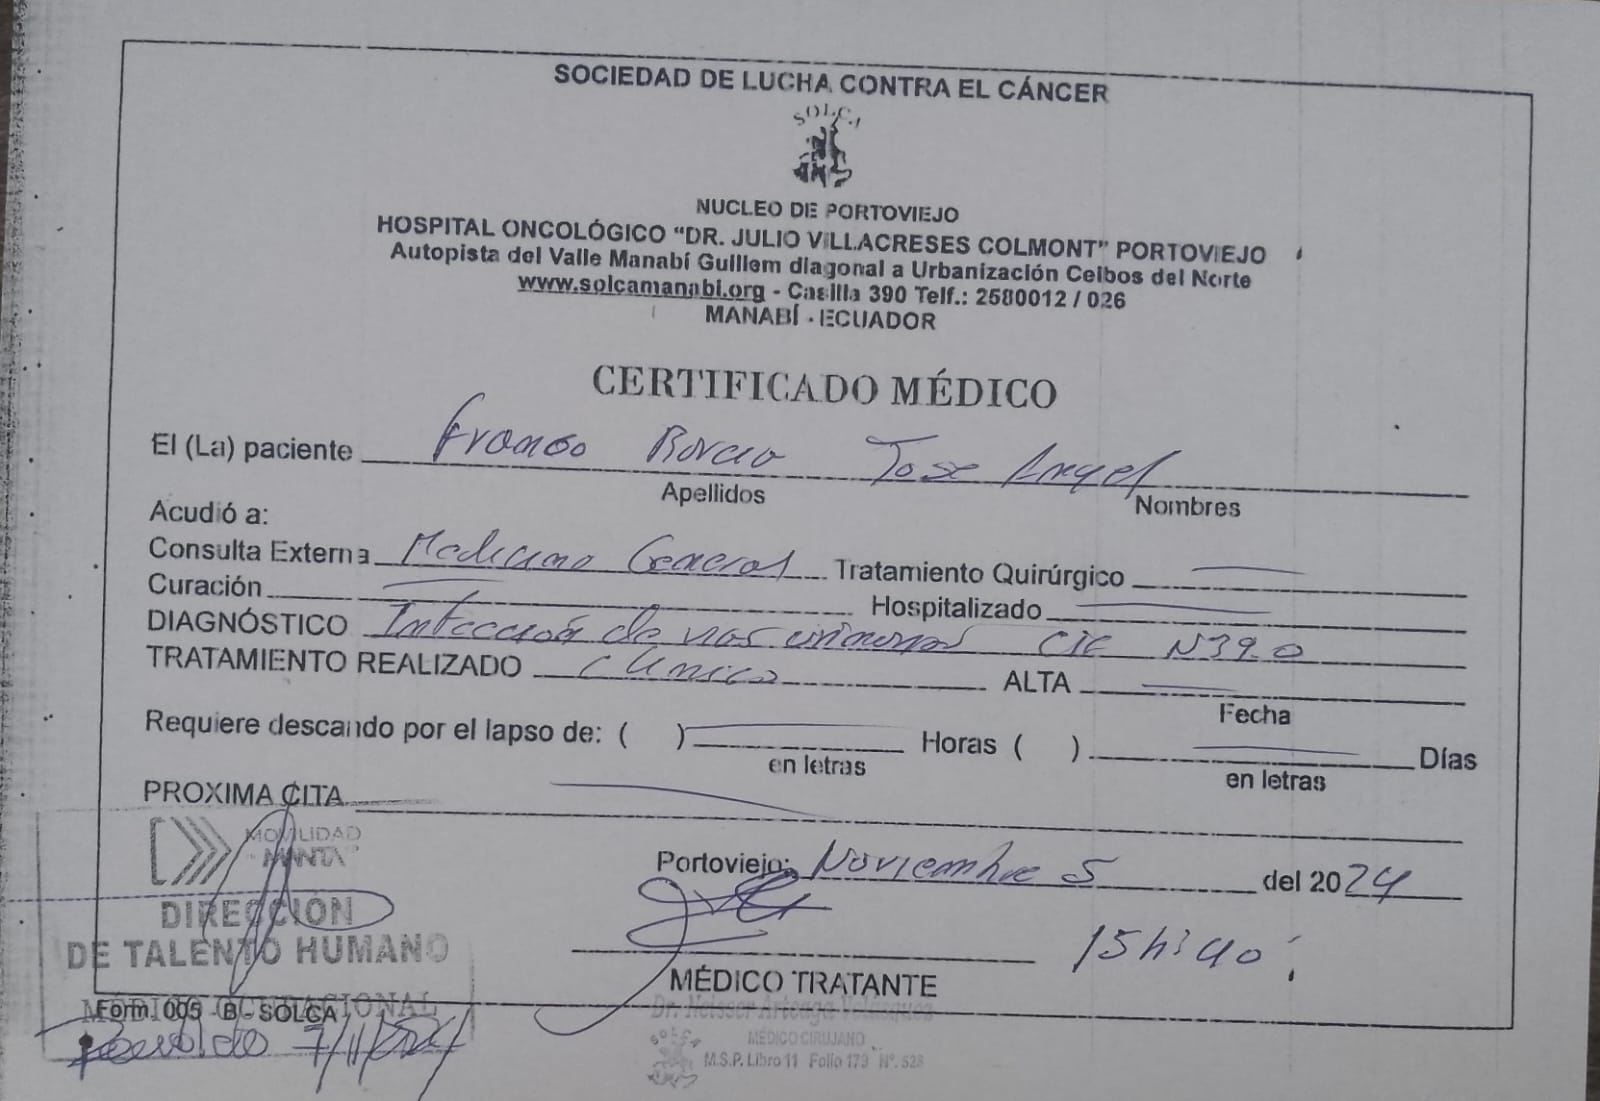 SOCIEDAD DE LUCHA CONTRA EL CÁNCER
SOLCA
NUCLEO DE PORTOVIEJO
HOSPITAL ONCOLÓGICO "DR. JULIO VILLACRESES COLMONT" PORTOVIEJO
Autopista del Valle Manabí Guillem diagonal a Urbanización Ceibos del Norte
www.solcamanabi.org - Casilla 390 Telf.: 2580012 / 026
MANABÍ - ECUADOR
CERTIFICADO MÉDICO
El (La) paciente Franco Jose Angel
Apellidos Nombres
Acudió a:
Consulta Externa Medicina General Tratamiento Quirúrgico
Curación Hospitalizado
DIAGNÓSTICO Infección de vias urinarias CIE N39.0
TRATAMIENTO REALIZADO Clinico ALTA
Fecha
Requiere descando por el lapso de: ( ) Horas ( ) Días
en letras en letras
PROXIMA CITA
MOVILIDAD
MANTA
Portoviejo: Noviembre 5 del 2024
DIRECCIÓN
DE TALENTO HUMANO
15h:40
MÉDICO TRATANTE
MÉDICO OCUPACIONAL
Form. 005 -B- SOLCA
Dr. Neisser Arteaga Velásquez
MÉDICO CIRUJANO
M.S.P. Libro 11 Folio 173 Nº. 528
7/11/2024